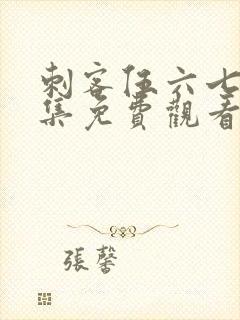 刺客伍六七
集免費觀看
張馨